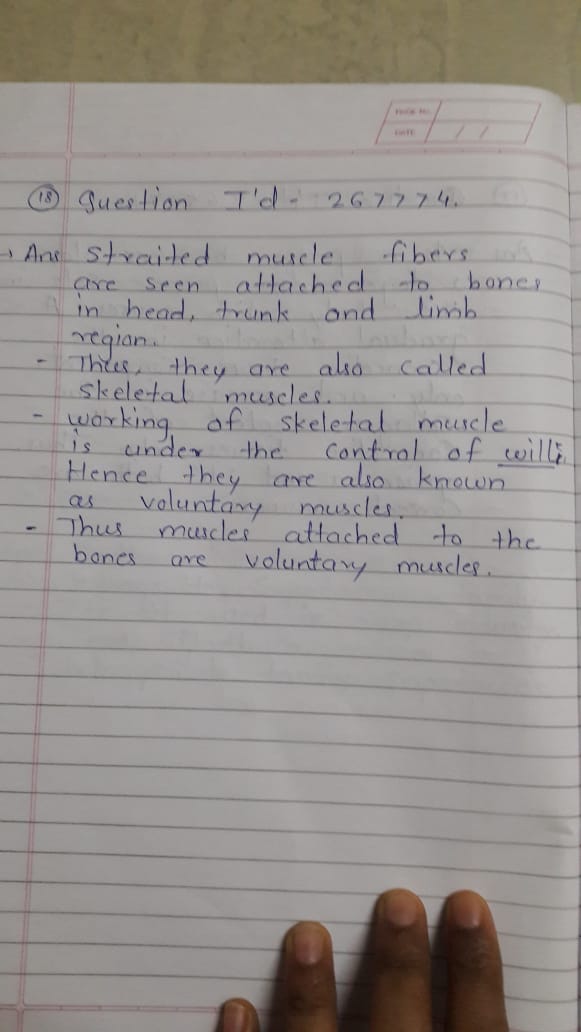 PAGE No.
DATE / /
(18) Question I'd - 267774.
→ Ans straited muscle fibers
are seen attached to bones
in head, trunk and limb
region.
- Thus, they are also called
skeletal muscles.
- working of skeletal muscle
is under the control of will.
Hence they are also known
as voluntary muscles.
- Thus muscles attached to the
bones are voluntary muscles.